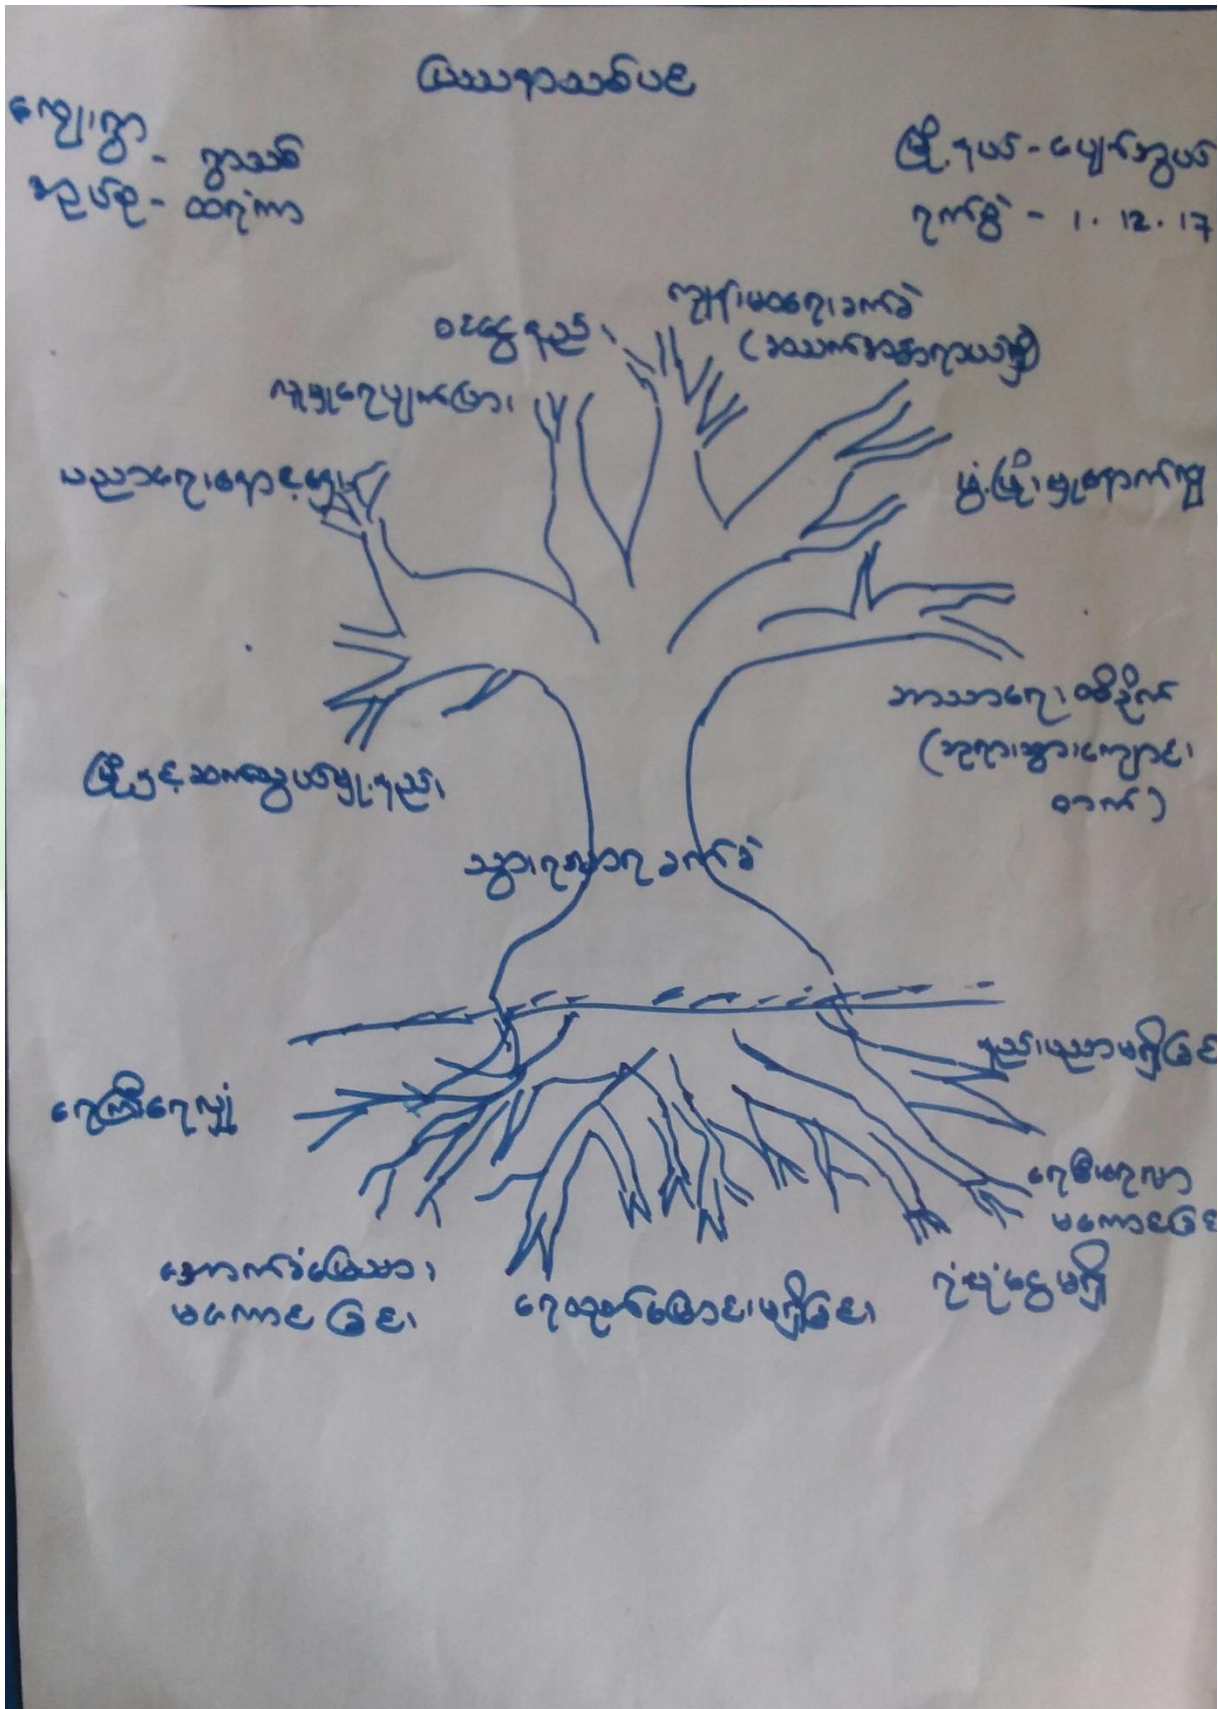 ပြဿနာသစ်ပင်
ကျေးရွာ - ရွာသစ်
အုပ်စု - ထရံကာ
မြို့နယ် - ပျော်ဘွယ်
ရက်စွဲ - 1. 12. 17
ကျန်းမာရေးခက်ခဲ
(အသက်အန္တရာယ်ရှိ)
ဝင်ငွေနည်း
လူမှုရေးပျက်ပြား
ပညာရေးနှောင့်နှေး
ဖွံ့ဖြိုးမှုနောက်ကျ
ဘာသာရေး ထိခိုက်
(ဘုရားသွားကျောင်း
တက်)
မြို့နှင့်ဆက်သွယ်မှုနည်း
သွားရလာရ ခက်ခဲ
နည်းပညာမရှိခြင်း
ရေကြီးရေလျှံ
ရေစီးရေလာ
မကောင်းခြင်း
အောက်ခံမြေသား
မကောင်းခြင်း
ရေထုတ်မြောင်းမရှိခြင်း
ရံပုံငွေမရှိ